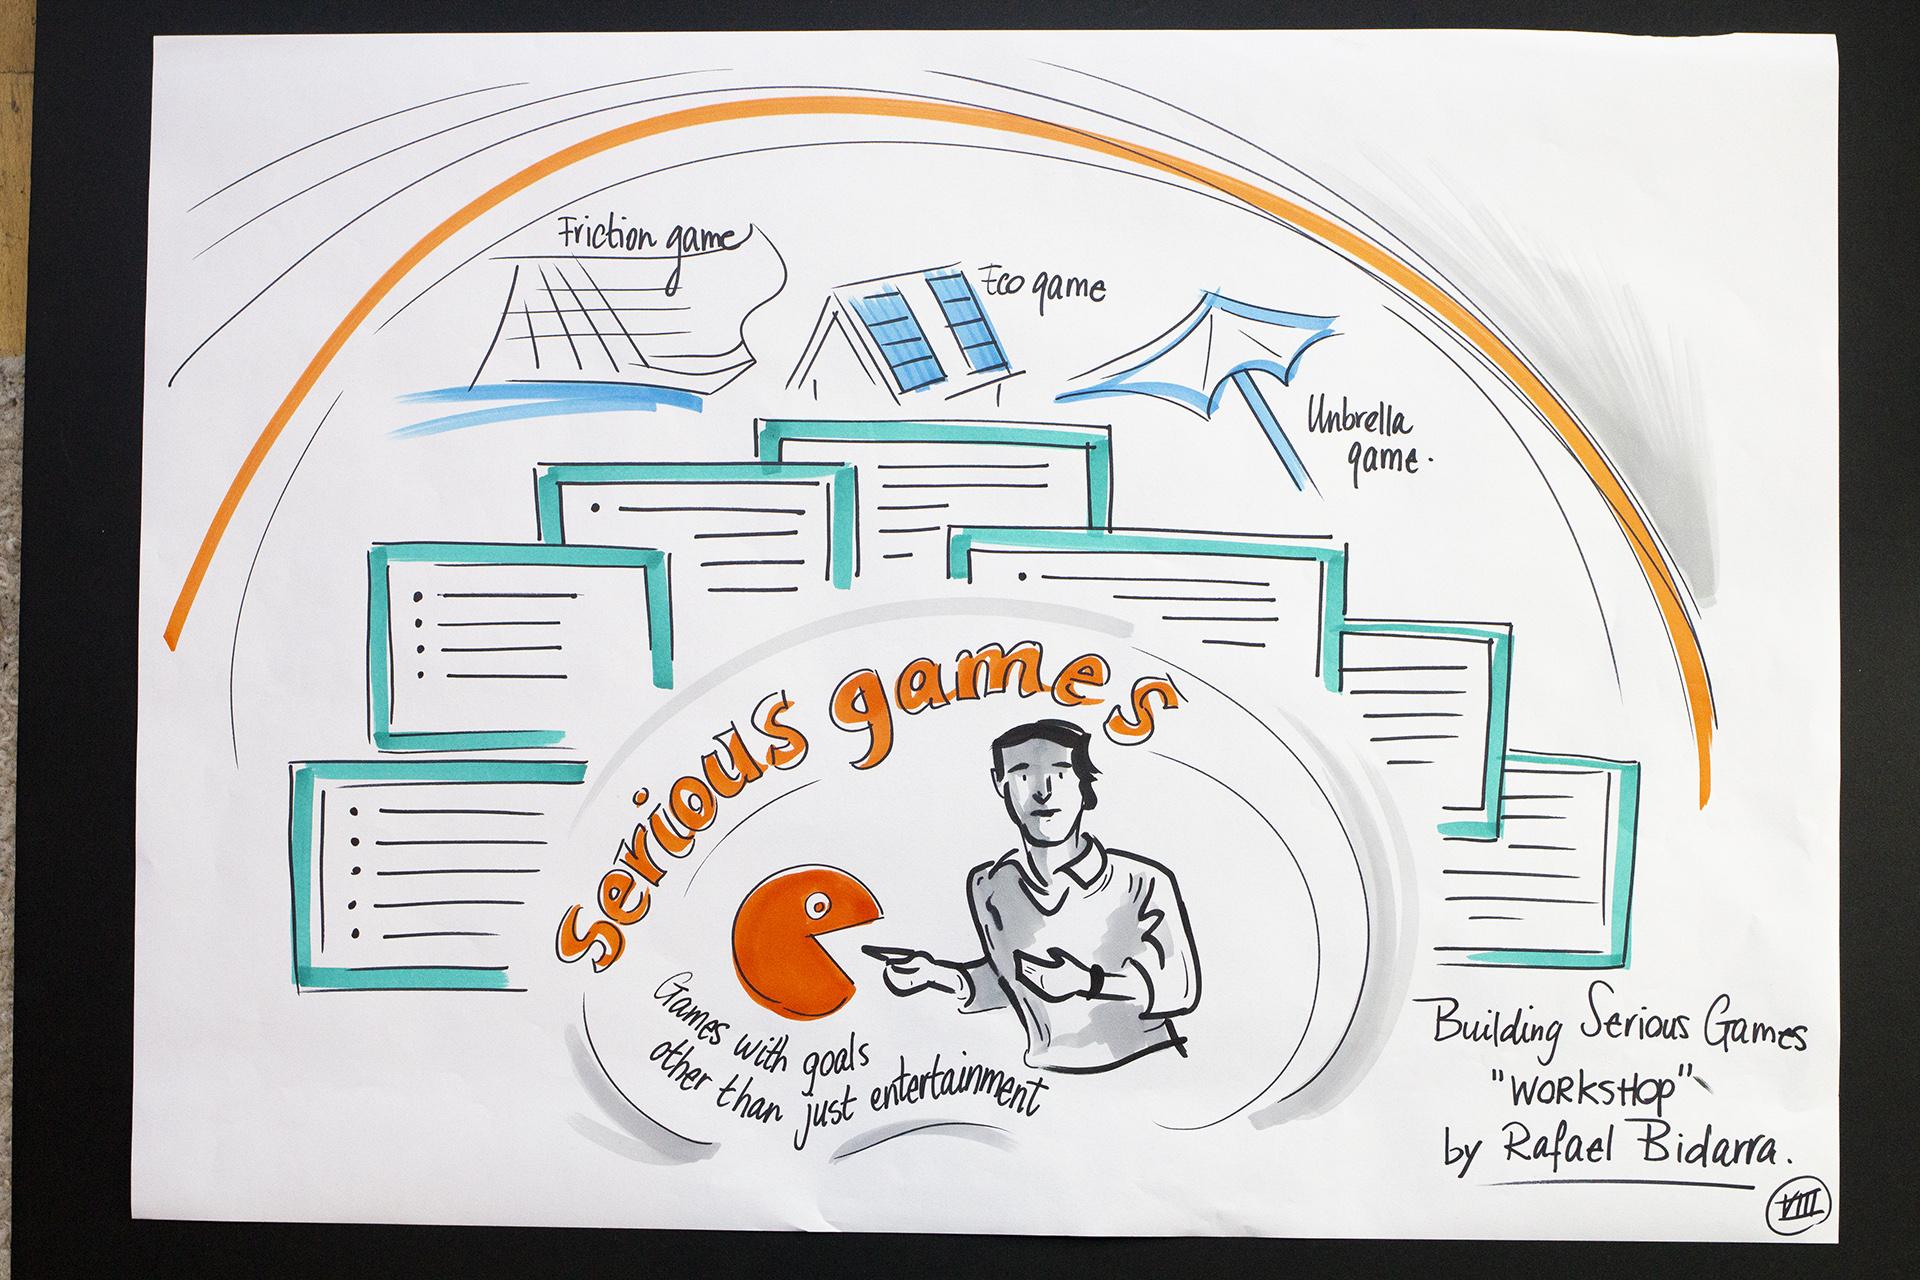 Friction game
Eco game
Unbrella
game.
Serious games
Games with goals
other than just entertainment
Building Serious Games
"WORKSHOP"
by Rafael Bidarra.
VIII